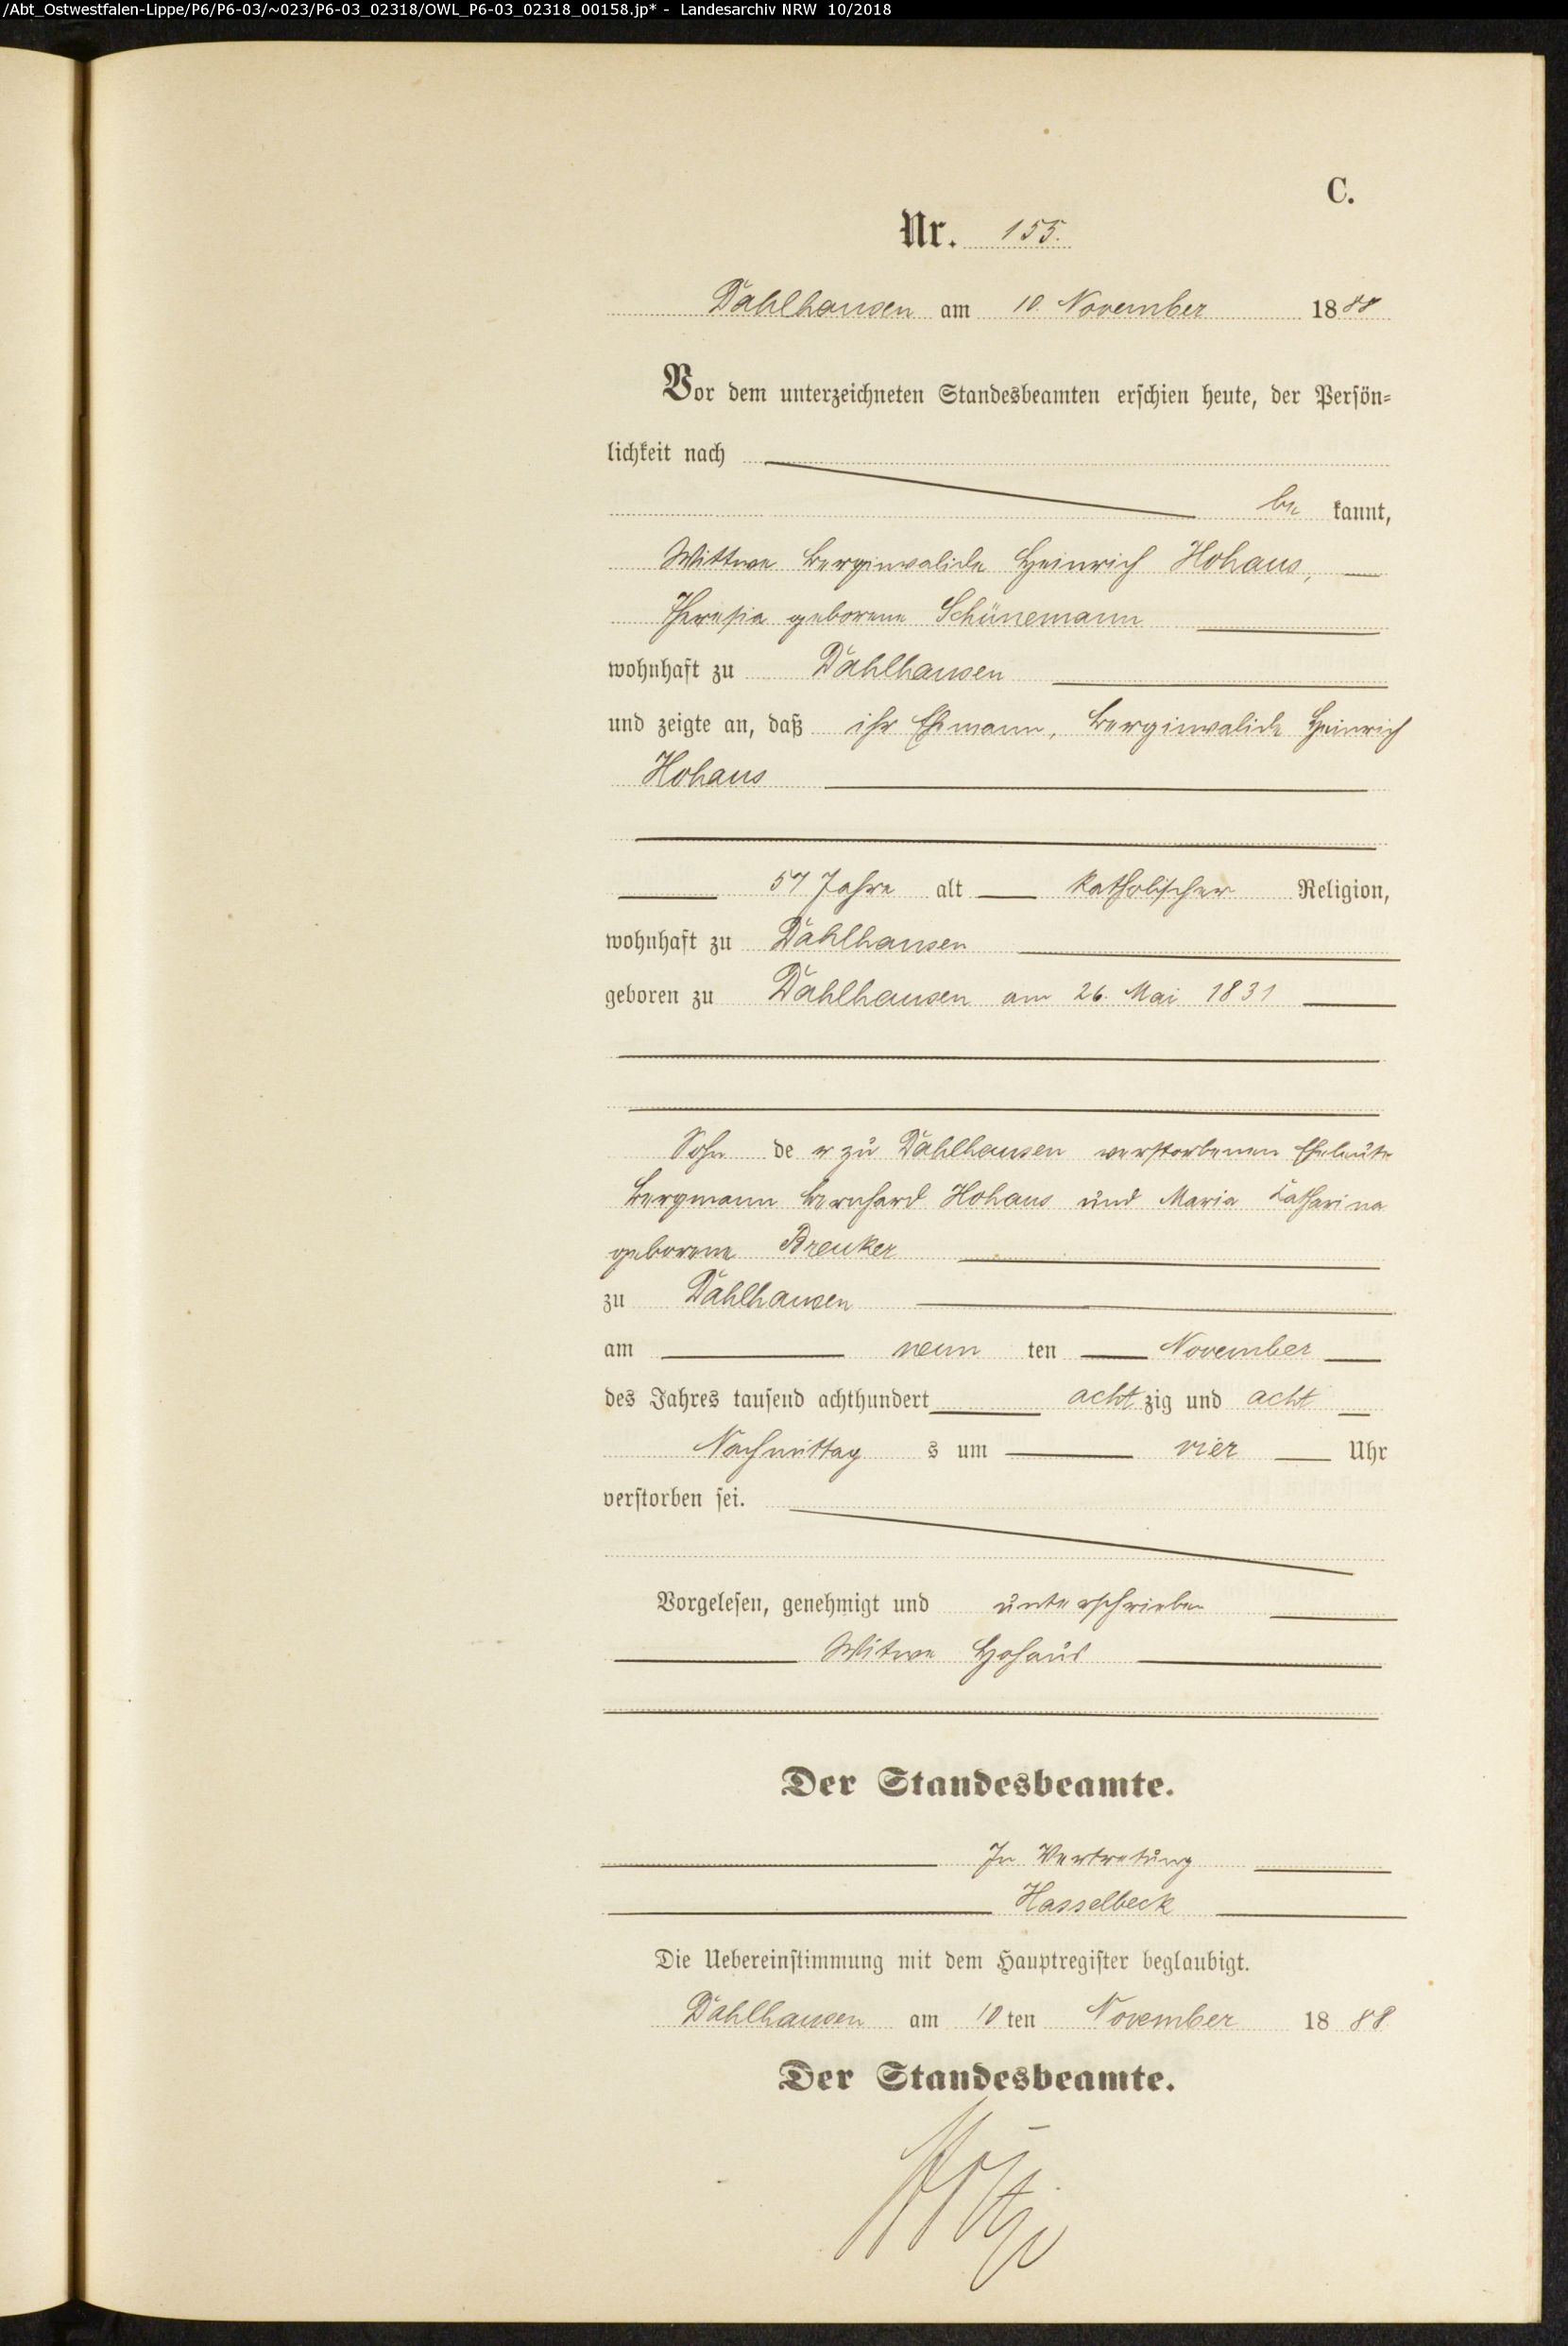 /Abt_Ostwestfalen-Lippe/P6/P6-03/~023/P6-03_02318/OWL_P6-03_02318_00158.jp* - Landesarchiv NRW 10/2018
C.
Nr. 155.
Dahlhausen am 10. November 1888
Vor dem unterzeichneten Standesbeamten erschien heute, der Persön-
lichkeit nach
be kannt,
Wittwe Berginvalide Heinrich Hohaus,
Theresia geborene Schünemann
wohnhaft zu Dahlhausen
und zeigte an, daß ihr Ehemann, Berginvalide Heinrich
Hohaus
57 Jahre alt katholischer Religion,
wohnhaft zu Dahlhausen
geboren zu Dahlhausen am 26. Mai 1831
Sohn de r zu Dahlhausen verstorbenen Eheleute
Bergmann Bernhard Hohaus und Maria Catharina
geborene Breuker
zu Dahlhausen
am neun ten November
des Jahres tausend achthundert acht zig und acht
Nachmittag s um vier Uhr
verstorben sei.
Vorgelesen, genehmigt und unterschrieben
Witwe Hohaus
Der Standesbeamte.
In Vertretung
Hasselbeck
Die Uebereinstimmung mit dem Hauptregister beglaubigt.
Dahlhausen am 10 ten November 18 88
Der Standesbeamte.